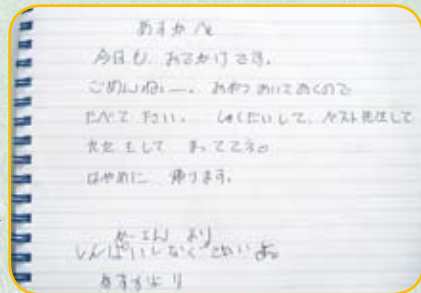 あすかへ
今日も、おでかけです。
ごめんねー。おやつおいておくので
たべて下さい。しゅくだいして、テスト先生して
して まっててネ。
はやめに 帰ります。
かーさん より
しんぱいしなくていいよ。
あすかより